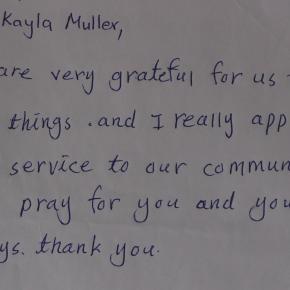 Kayla Muller,
are very grateful for us
things . and I really app
service to our commun
pray for you and you
ys. thank you.